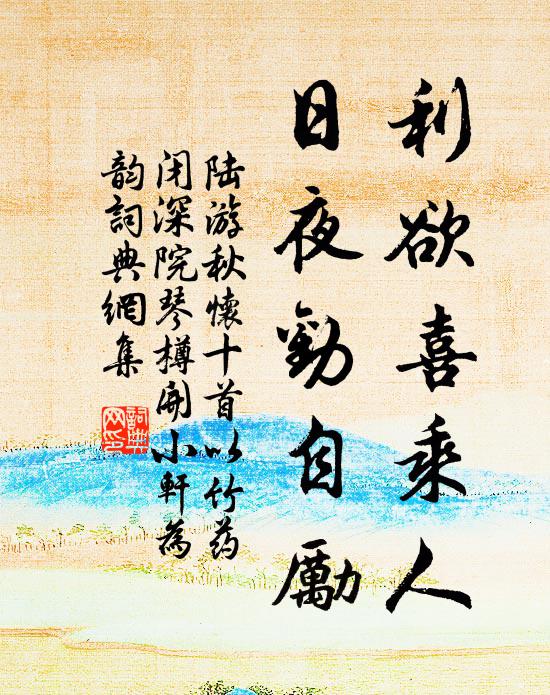 利欲喜乘人
日夜勤自勵
陆游秋懷十首以竹药
闭深院琴樽開小軒為
韵詞典網集